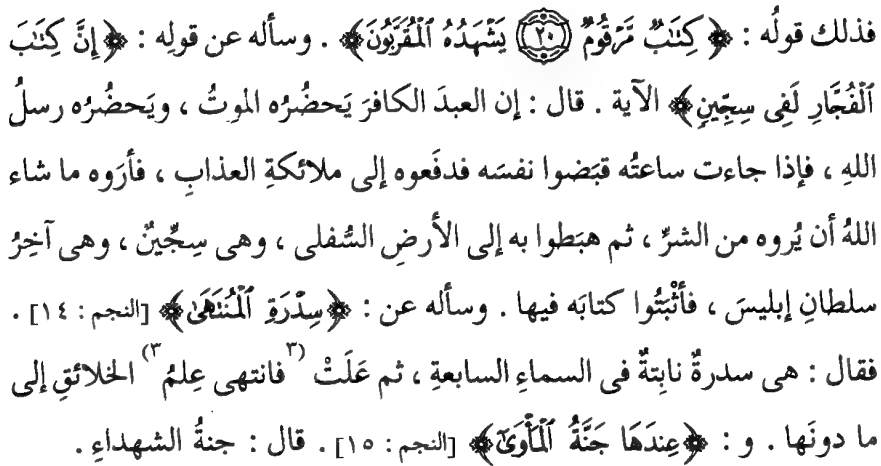 فذلك قولُه : ﴿ كِتَٰبٌ مَّرْقُومٌ ﴿٢٠﴾ يَشْهَدُهُ ٱلْمُقَرَّبُونَ ﴾ . وسأله عن قولِه : ﴿ إِنَّ كِتَٰبَ
ٱلْفُجَّارِ لَفِى سِجِّينٍ ﴾ الآية . قال : إن العبدَ الكافرَ يَحضُرُه الموتُ ، ويَحضُرُه رسلُ
اللهِ ، فإذا جاءت ساعتُه قبَضوا نفسَه فدفَعوه إلى ملائكةِ العذابِ ، فأرَوه ما شاء
اللهُ أن يُروه من الشرِّ ، ثم هبَطوا به إلى الأرضِ السُّفلى ، وهى سِجِّينٌ ، وهى آخِرُ
سلطانِ إبليسَ ، فأثْبَتُوا كتابَه فيها . وسأله عن : ﴿ سِدْرَةِ ٱلْمُنتَهَىٰ ﴾ [النجم : ١٤] .
فقال : هى سدرةٌ نابِتةٌ فى السماءِ السابعةِ ، ثم عَلَتْ (٣ فانتهى عِلمُ ٣) الخلائقِ إلى
ما دونَها . و : ﴿ عِندَهَا جَنَّةُ ٱلْمَأْوَىٰٓ ﴾ [النجم : ١٥] . قال : جنةُ الشهداءِ .